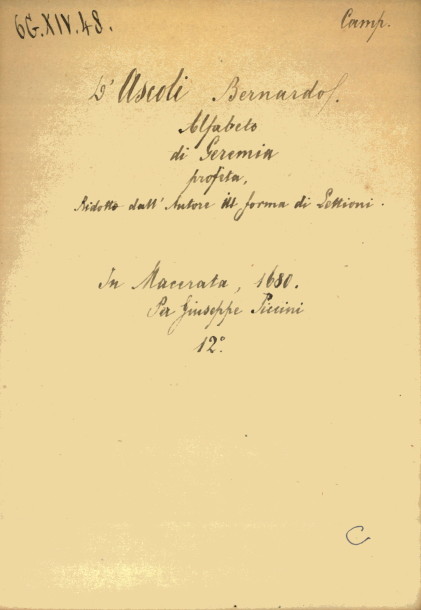 6G.XIV.48.
Camp.
D' Ascoli Bernardo f.
Alfabeto
di Geremia
profeta,
Ridotto dall' Autore in forma di Lettioni.
In Macerata, 1680.
Per Giuseppe Piccini
12°.
C